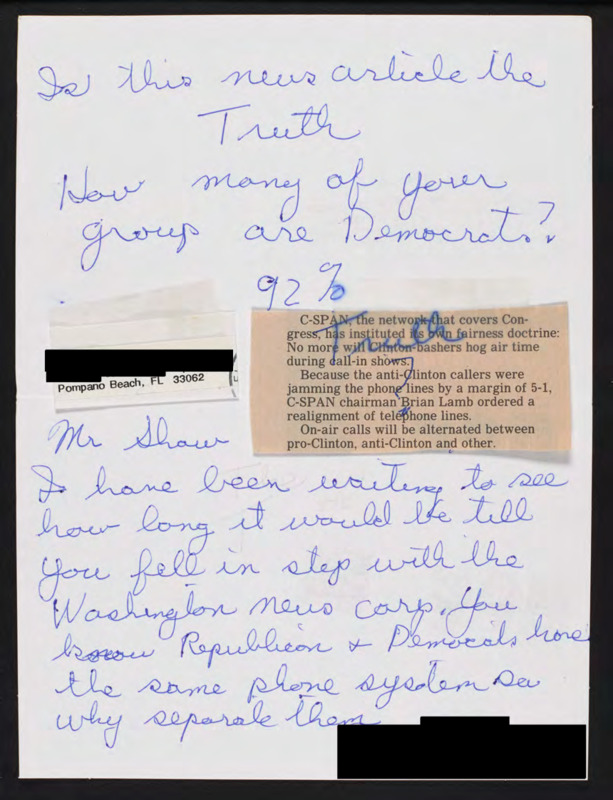 Is this news article the
Truth
How many of your
group are Democrats?
92%
Pompano Beach, FL 33062
C-SPAN, the network that covers Con-
gress, has instituted its own fairness doctrine:
No more will Clinton-bashers hog air time
during call-in shows.
Because the anti-Clinton callers were
jamming the phone lines by a margin of 5-1,
C-SPAN chairman Brian Lamb ordered a
realignment of telephone lines.
On-air calls will be alternated between
pro-Clinton, anti-Clinton and other.
Truth
?
Mr Shaw
I have been waiting to see
how long it would be till
you fell in step with the
Washington news corp. You
know Republicon & Democrats have
the same phone system so
why separate them